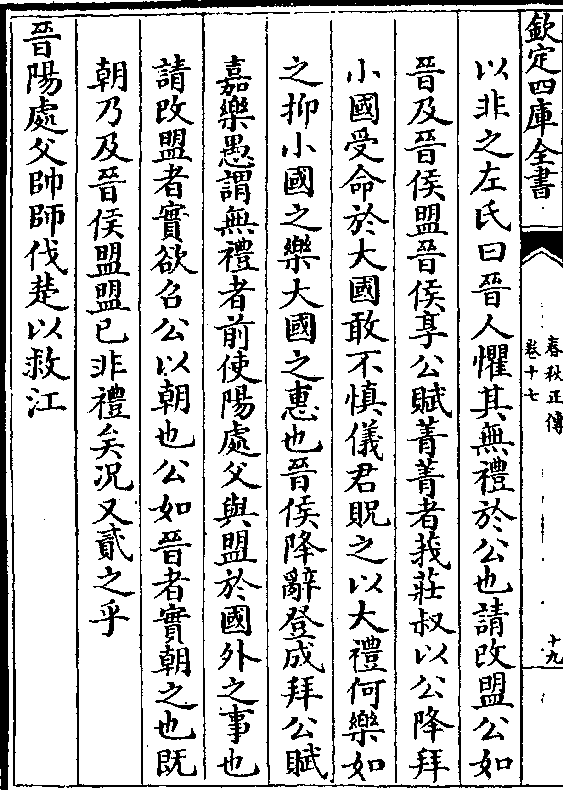 欽定四庫全書
春秋正傳
卷十七
十九
以非之左氏曰晉人懼其無禮於公也請改盟公如
晉及晉侯盟晉侯享公賦菁菁者莪莊叔以公降拜曰
小國受命於大國敢不慎儀君貺之以大禮何樂如
之抑小國之樂大國之惠也晉侯降辭登成拜公賦
嘉樂愚謂無禮者前使陽處父與盟於國外之事也
請改盟者實欲召公以朝也公如晉者實朝之也既
朝乃及晉侯盟盟已非禮矣况又貳之乎
晉陽處父帥師伐楚以救江